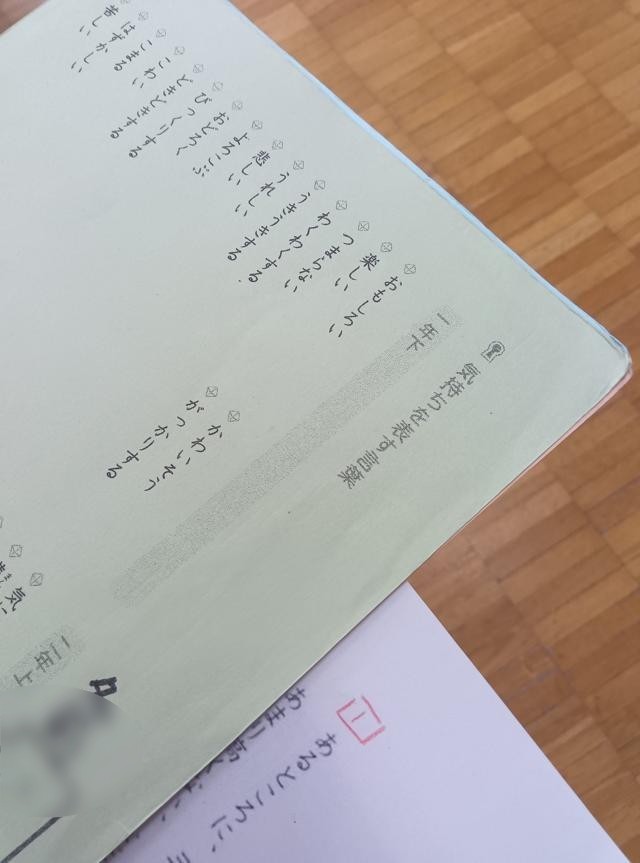 気持ちを表す言葉
一年下
おもしろい
楽しい
つまらない
わくわくする
うきうきする
うれしい
悲しい
よろこぶ
おどろく
びっくりする
どきどきする
こわい
こまる
はずかしい
苦しい
かわいそう
がっかりする
二年上
気に
一
あるところに、
あまり高